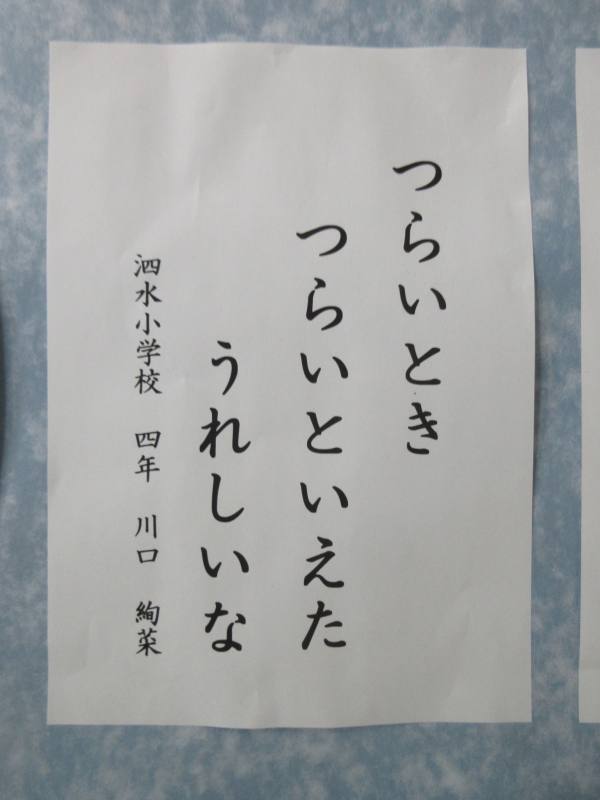 つらいとき
つらいといえた
うれしいな
泗水小学校 四年 川口 絢菜